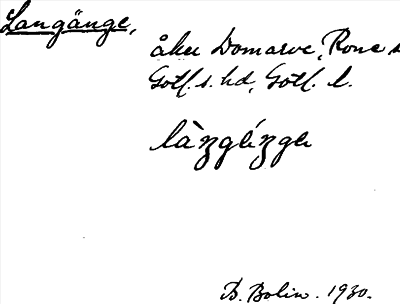 Langänge,
åker Domarve, Rone s
Gotl. s. hd, Gotl. l.
B. Bolin. 1930.